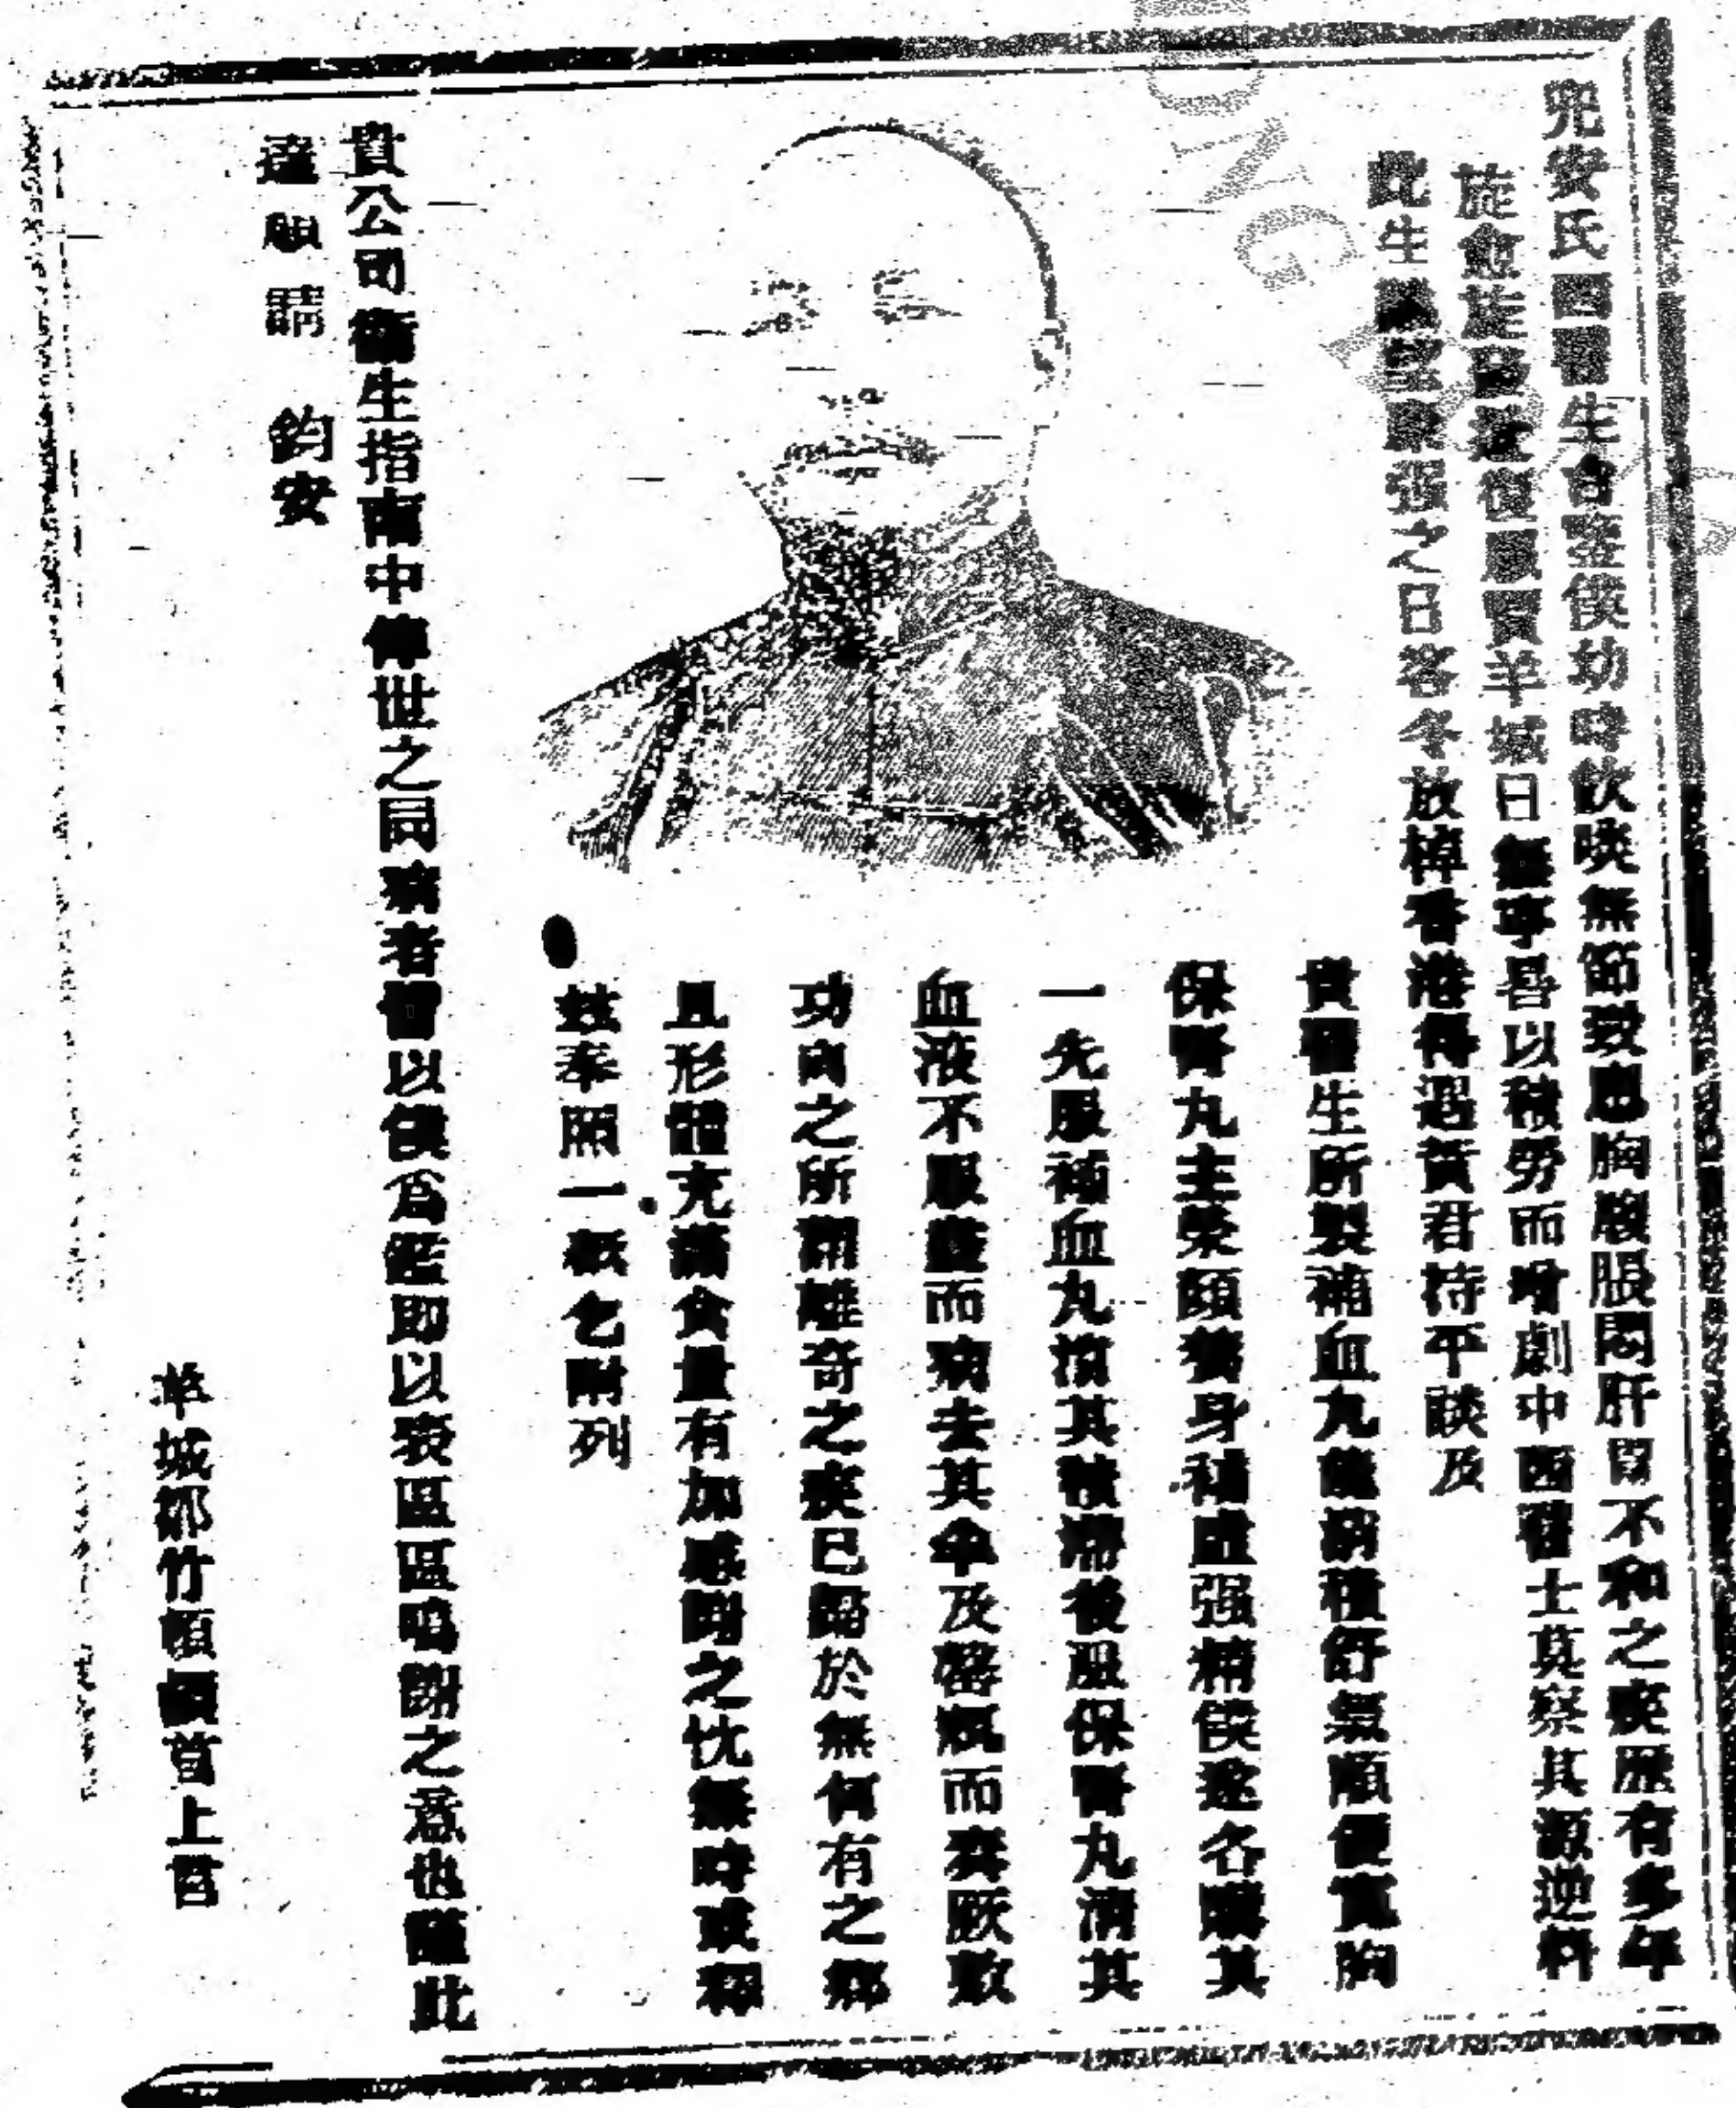 兜安氏西醫生台鑒僕幼時飲啖無節致患胸膈脹悶肝胃不和之疾歷有多年
旋愈旋 復 羊城日無寧晷以積勞而增劇中西醫士莫察其源逆料
此生 强之日客冬放棹香港得遇黃君持平談及
貴醫生所製補血丸能消積舒氣順便寬胸
保腎丸主榮顏養身補血强精僕遂各購其
一先服補血丸 其積滯後服保腎丸清其
血液不服 而病去其 及 而奏厥敷
功向之所謂離奇之疾已歸於無何有之鄉
且形體充滿食量有加感謝之忱無時或釋
茲奉照一 乞附列
貴公司衞生指南中俾世之同病者 以僕爲鑑即以表區區鳴謝之意也謹此
達 請 鈞安
羊城鄒竹 頓首上言
HONG KONG